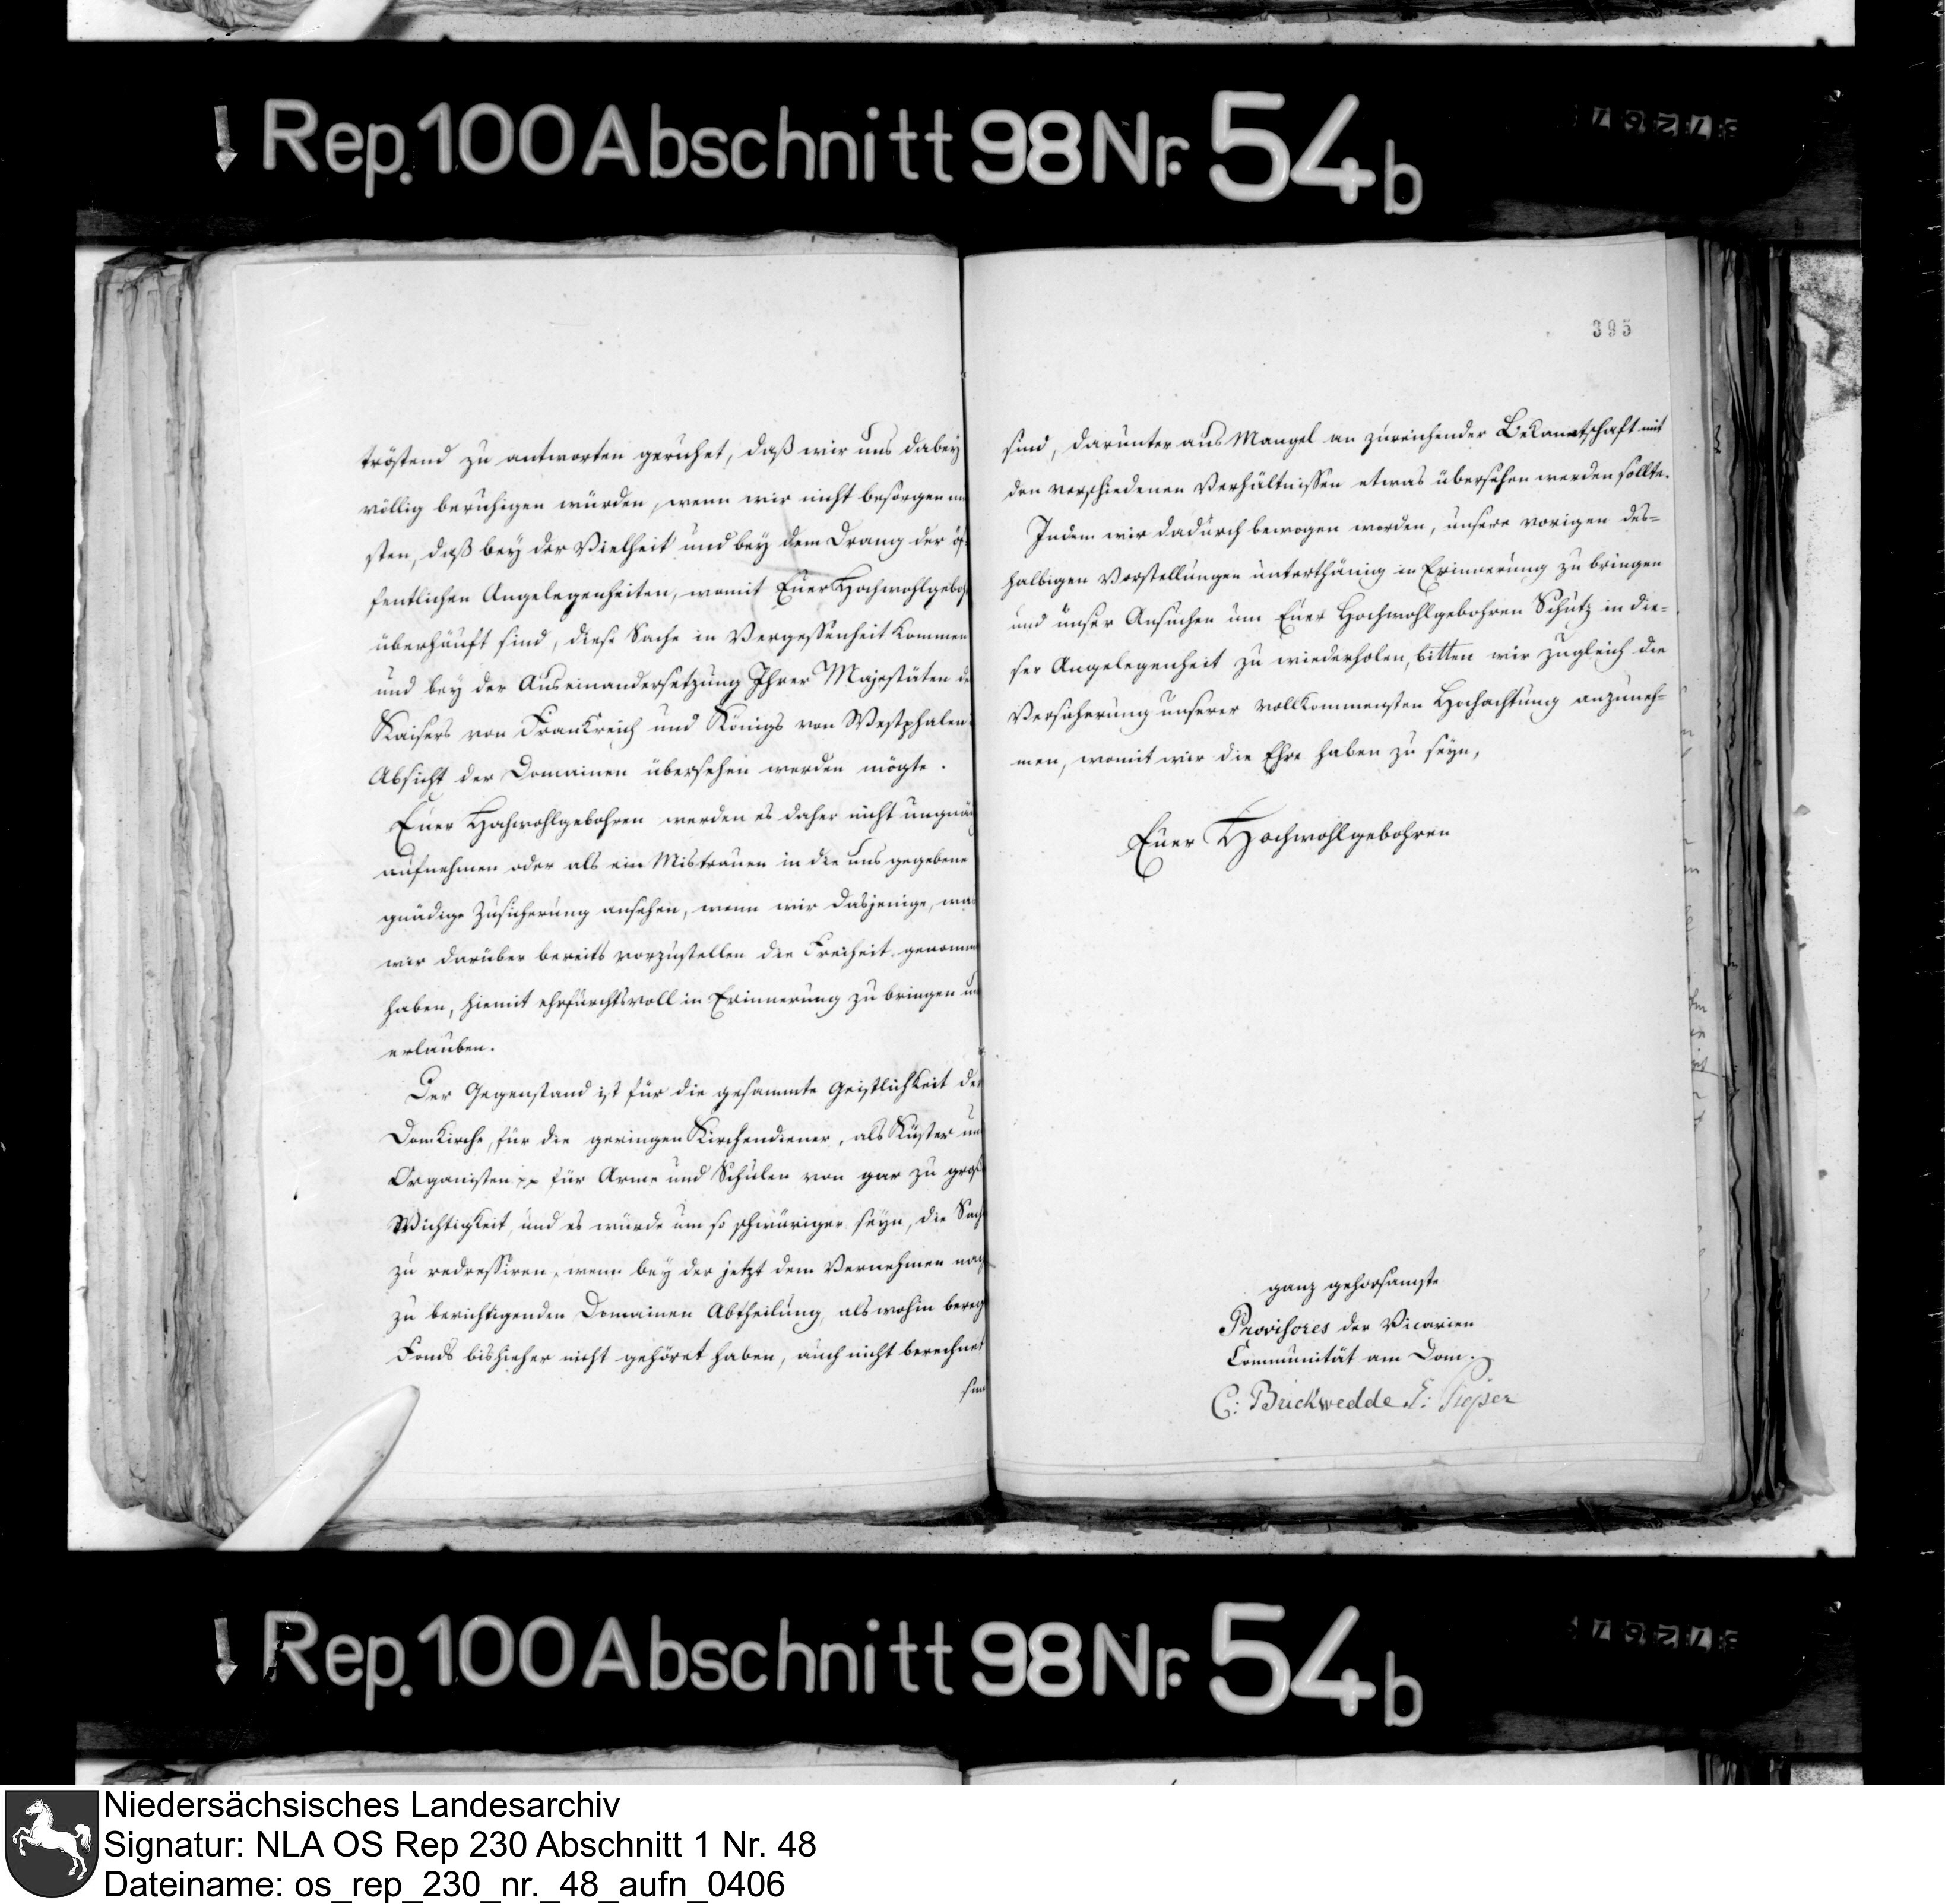 Rep. 100 Abschnitt 98 Nr. 54b
395
tröstend zu antworten geruhet, daß wir uns dabey
völlig beruhigen würden, wenn wir nicht besorgen mü
sten, daß bey der Vielheit und bey dem Drang der öf
fentlichen Angelegenheiten, womit Euer Hochwohlgeboh
überhäuft sind, diese Sache in Vergessenheit kommen
und bey der Auseinandersetzung Ihrer Majestäten de
Kaisers von Frankreich und Königs von Westphalen
Absicht der Domainen übersehen werden mögte.
Euer Hochwohlgebohren werden es daher nicht ungnä
aufnehmen oder als ein Mistrauen in die uns gegebene
gnädige Zusicherung ansehen, wenn wir dasjenige, wa
wir darüber bereits vorzustellen die Freiheit genomm
haben, hiemit ehrfurchtsvoll in Erinnerung zu bringen un
erlauben.
Der Gegenstand ist für die gesammte Geistlichkeit de
Domkirche, für die geringen Kirchendiener, als Küster un
Organisten pp für Arme und Schulen von gar zu groß
Wichtigkeit, und es würde um so schwüriger seyn, die Sach
zu redressiren, wenn bey der jetzt dem Vernehmen nach
zu berichtigenden Domainen Abtheilung, als wohin bereg
Fonds bishieher nicht gehöret haben, auch nicht berechnet
sind
sind, darunter aus Mangel an zureichender Bekanntschaft mit
den verschiedenen Verhältnissen etwas übersehen werden sollte.
Indem wir dadurch bewogen worden, unsere vorigen des=
halbigen Vorstellungen unterthänig in Erinnerung zu bringen
und unser Ansuchen um Euer Hochwohlgebohren Schutz in die=
ser Angelegenheit zu wiederholen, bitten wir zugleich die
Versicherung unserer vollkommensten Hochachtung anzuneh=
men, womit wir die Ehre haben zu seyn,
Euer Hochwohlgebohren
ganz gehorsamste
Provisores der Vicarien
Communität am Dom.
C: Brickwedde
Rep. 100 Abschnitt 98 Nr. 54b
Niedersächsisches Landesarchiv
Signatur: NLA OS Rep 230 Abschnitt 1 Nr. 48
Dateiname: os_rep_230_nr._48_aufn_0406